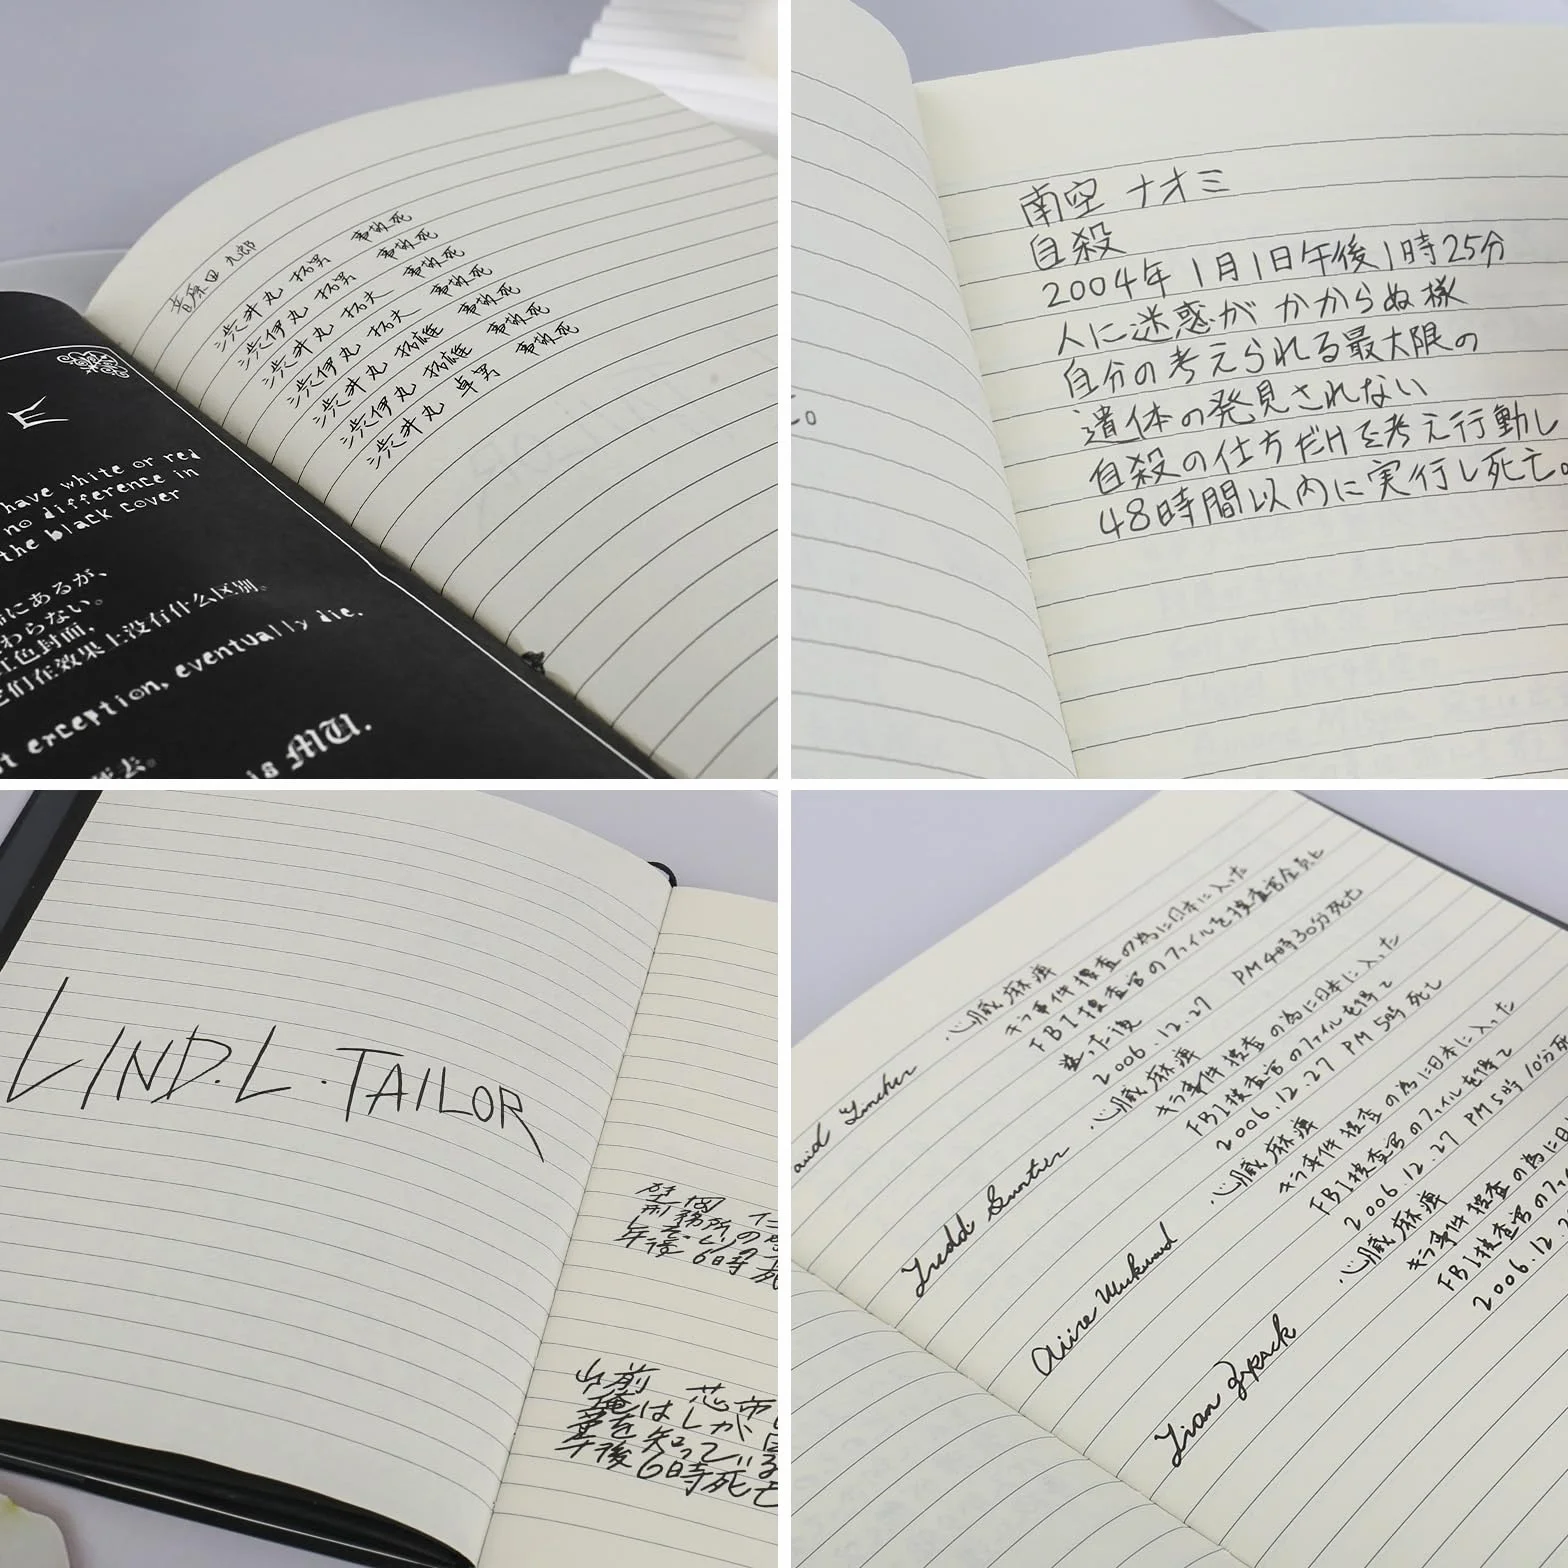 音原田 九郎
渋井丸 拓男 事故死
渋伊丸 拓男 事故死
渋井丸 拓夫 事故死
渋伊丸 拓夫 事故死
渋井丸 拓雄 事故死
渋伊丸 拓雄 事故死
渋井丸 卓男 事故死
E
have white or red
no difference in
the black cover
にあるが、
わらない。
红色封面,
们在效果上没有什么区别。
t exception, eventually die.
死去。
is MU.
た。
南空 ナオミ
自殺
2004年1月1日午後1時25分
人に迷惑がかからぬ様
自分の考えられる最大限の
遺体の発見されない
自殺の仕方だけを考え行動し
48時間以内に実行し死亡。
LIND.L.TAILOR
刑務所の
午後6時死
俺はしが
を知っている
午後6時死亡
心臓麻痺
キラ事件捜査の為に日本に入った
FBI捜査官のファイルを捜査官全員に
送った後
2006.12.27 PM4時30分死亡
Fredd Guntier
心臓麻痺
キラ事件捜査の為に日本に入った
FBI捜査官のファイルを得て
2006.12.27 PM 5時 死亡
心臓麻痺
キラ事件捜査の為に日本に入った
FBI捜査官のファイルを得て
2006.12.27 PM 5時 10分死
Lian
心臓麻痺
キラ事件捜査の為に日
FBI捜査官のファイ
2006.12.2